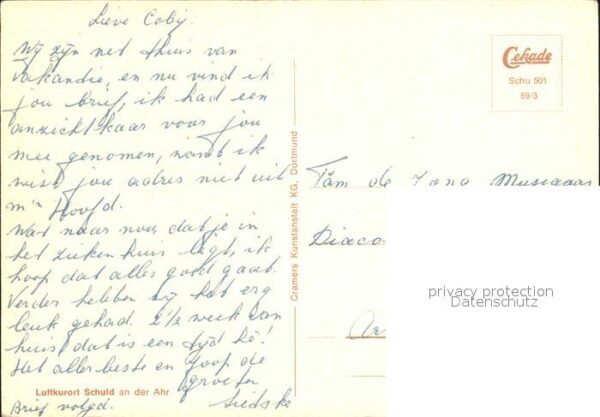 Lieve Coby
Wij zijn net thuis van
vakandie, en nu vind ik
jou brief, ik had een
anzichtkaar voor jou
mee genomen, want ik
wist jou adres niet uit
m'n Hoofd.
Wat naar nou dat je in
het zieken huis ligt, ik
hoop dat alles goed gaat.
Verder hebben wij het erg
leuk gehad. 2 1/2 week van
huis dat is een tijd hè!
Het aller beste en Joop de
groeten
Luftkurort Schuld an der Ahr
Brief volgd.
Cramers Kunstanstalt KG, Dortmund
Cekade
Schu 501
69/3
de Jong
privacy protection
Datenschutz